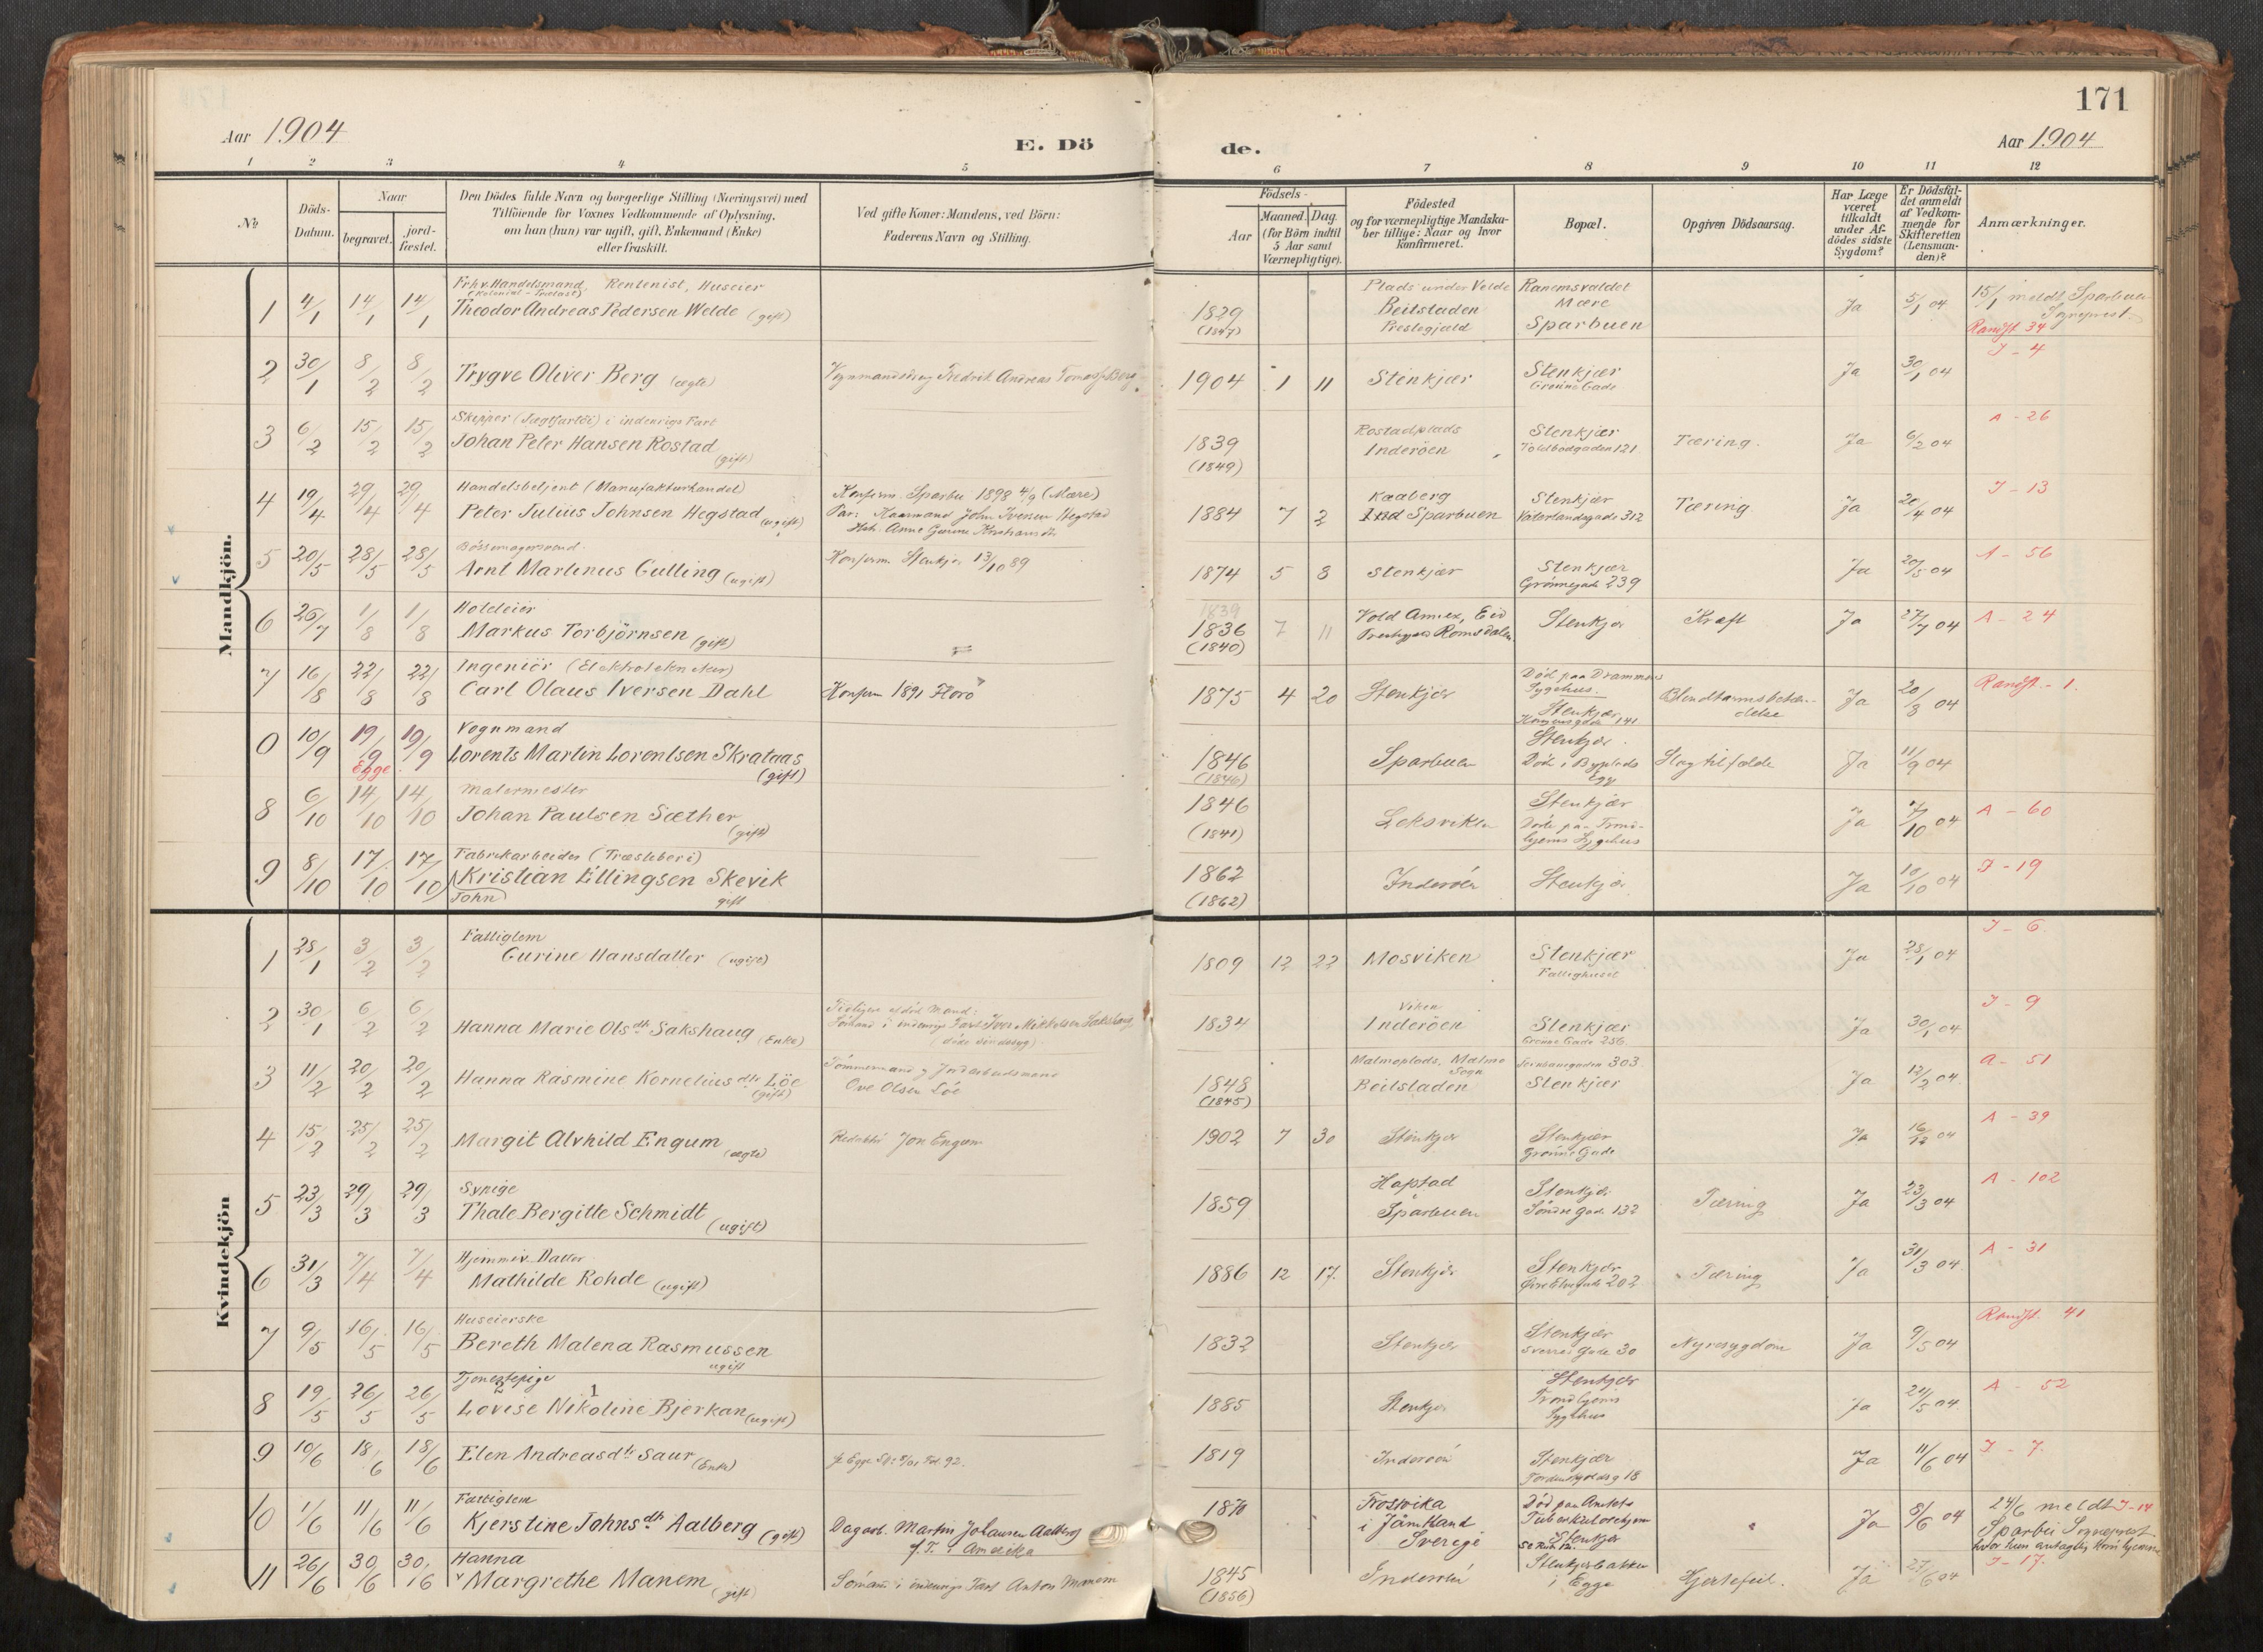 171
Aar 1904
E. Dö
de.
Aar 1904
1 2 3 4 5 6 7 8 9 10 11 12
№
Döds-Datum.
Naar
begravet.
jord-fæstet.
Den Dödes fulde Navn og borgerlige Stilling (Næringsvei) med
Tilföiende for Voxnes Vedkommende af Oplysning,
om han (hun) var ugift, gift, Enkemand (Enke)
eller fraskilt.
Ved gifte Koner: Mandens, ved Börn:
Faderens Navn og Stilling.
Födsels-
Aar
Maaned. Dag.
(for Börn indtil
5 Aar samt
Værnepligtige).
Födested
og for værnepligtige Mandska-
ber tillige: Naar og hvor
konfirmeret.
Bopæl.
Opgiven Dödsaarsag.
Har Læge
været
tilkaldt
under Af-
dödes sidste
Sygdom?
Er Dödsfal-
det anmeldt
af Vedkom-
mende for
Skifteretten
(Lensman-
den)?
Anmærkninger.
Mandkjön.
Frhv. Handelsmand, Rentenist, Huseier
1 4/1 14/1 14/1 Theodor Andreas Pedersen Welde (gift) 1829 (1847) Plads under Velde Beitstaden Prestegjæld Ranemsvaldet Mære Sparbuen Ja 5/1 04 15/1 meldt Sparbuen Sognprest. Randst. 34
2 30/1 8/2 8/2 Trygve Oliver Berg (ægte) Vognmandsdreng Fredrik Andreas Tomassen Berg 1904 1 11 Stenkjær Stenkjær Grønne Gade Ja 30/1 04 I - 4
Skipper (Jægtfartöi) i indenrigs Fart
3 6/2 15/2 15/2 Johan Peter Hansen Rostad (gift) 1839 (1849) Rostadplads Inderöen Stenkjær Toldbodgaden 121. Tæring. Ja 6/2 04 A - 26
Handelsbetjent (Manufakturhandel)
4 19/4 29/4 29/4 Peter Julius Johnsen Hegstad (ugift) Konfirm. Sparbu 1898 4/9 (Mære) Par: Gaarmand John Iversen Hegstad 1884 7 2 Kaaberg Sparbuen Stenkjær Vaterlandsgade 312 Tæring Ja 20/4 04 I - 13
Bössemagersvend.
5 20/5 28/5 28/5 Arnt Martinus Gulling (ugift) Konfirm. Stenkjer 13/10 89 1874 5 8 Stenkjær Stenkjær Grönnegade 239 Ja 20/5 04 A - 56
Hoteleier
6 26/7 1/8 1/8 Markus Torbjörnsen (gift) 1839 1836 (1840) 7 11 Vold Annex, Eid Romsdalen Stenkjer Kræft Ja 27/7 04 A - 24
Ingeniör (Elektrotekniker)
7 16/8 22/8 22/8 Carl Olaus Iversen Dahl Konfirm 1891 Florö 1875 4 20 Stenkjer Död paa Drammens Sygehus. Stenkjær Kongensgade 141 Blindtarmsbetændelse Ja 20/8 04 Randst. - 1.
Vognmand
0 10/9 19/9 Egge 19/9 Lorents Martin Lorentsen Skrataas (gift) 1846 (1846) Sparbuen Stenkjer. Död i Byplads Egg Slagtilfælde Ja 11/9 04
Malermester
8 6/10 14/10 14/10 Johan Paulsen Sæther (gift) 1846 (1841) Leksviken Stenkjær Döde paa Trondhjems Sygehus Ja 7/10 04 A - 60
Fabrikarbeider (Træsliberi)
9 8/10 17/10 17/10 Kristian Ellingsen Skevik gift (John) 1862 (1862) Inderöen Stenkjer Ja 10/10 04 I - 19
Kvindekjön
Fattiglem
1 28/1 3/2 3/2 Gurine Hansdatter (ugift) 1809 12 22 Mosviken Stenkjær Fattighuset Ja 28/1 04 I - 6
2 30/1 6/2 6/2 Hanna Marie Olsdtr Sakshaug (Enke) Tidligere afdöd Mand: Sömand i indenrigs Fart Iver Mikkelsen Sakshaug 1834 Viken Inderöen Stenkjær Grønne Gade 256 Ja 30/1 04 I - 9
3 11/2 20/2 20/2 Hanna Rasmine Korneliusdtr Löe (gift) Tömmermand og Jordarbeidsmand Ove Olsen Löe 1848 (1845) Malmoplads, Malmo Sogn Beitstaden Jernbanegaden 303. Stenkjær Ja 12/2 04. A - 51
4 15/2 25/2 25/2 Margit Alvhild Engum (ægte) Redaktör Jon Engum 1902 7 30 Stenkjer Stenkjær Grønne Gade Ja 16/2 04 A - 39
Sypige
5 23/3 29/3 29/3 Thale Bergitte Schmidt (ugift) 1859 Hapstad Sparbuen Stenkjer Söndre Gade 132 Tæring Ja 23/3 04 A - 102
Hjemmev. Datter
6 31/3 7/4 7/4 Mathilde Rohde (ugift) 1886 12 17. Stenkjer Stenkjer 202 Tæring Ja 31/3 04. A - 31
Huseierske
7 9/5 16/5 16/5 Bereth Malena Rasmussen ugift 1832 Stenkjer Stenkjær Sverres Gade 30 Nyresygdom Ja 9/5 04 Randst. 41
Tjenestepige
8 19/5 26/5 26/5 Lovise Nikoline Bjerkan (ugift) 2 1 1885 Stenkjer Stenkjer Trondhjems Sygehus Ja 24/5 04 A - 52
9 10/6 18/6 18/6 Elen Andreasdtr Saur (Enke) 1819 Inderöen Stenkjær Tordenskjoldsg 18 Ja 11/6 04 I - 7.
Fattiglem
10 1/6 11/6 11/6 Kjerstine Johnsdtr Aalberg (gift) Dagarb. Martin Johansen Aalberg f.T. i Amerika 1870 Trosvika i Jämtland Sverige Död paa Amtets Tuberkulosehjem Stenkjer Ja 8/6 04 24/6 meldt I-14 Sparbu Sognprest hvor hun antagelig
Hanna
11 26/6 30/6 30/6 Margrethe Manem (gift) Sömand i indenrigs Fart Anton Manem 1845 (1856) Inderöen Stenkjerbakken i Egge Hjertefeil. Ja 27/6 04 I - 17.